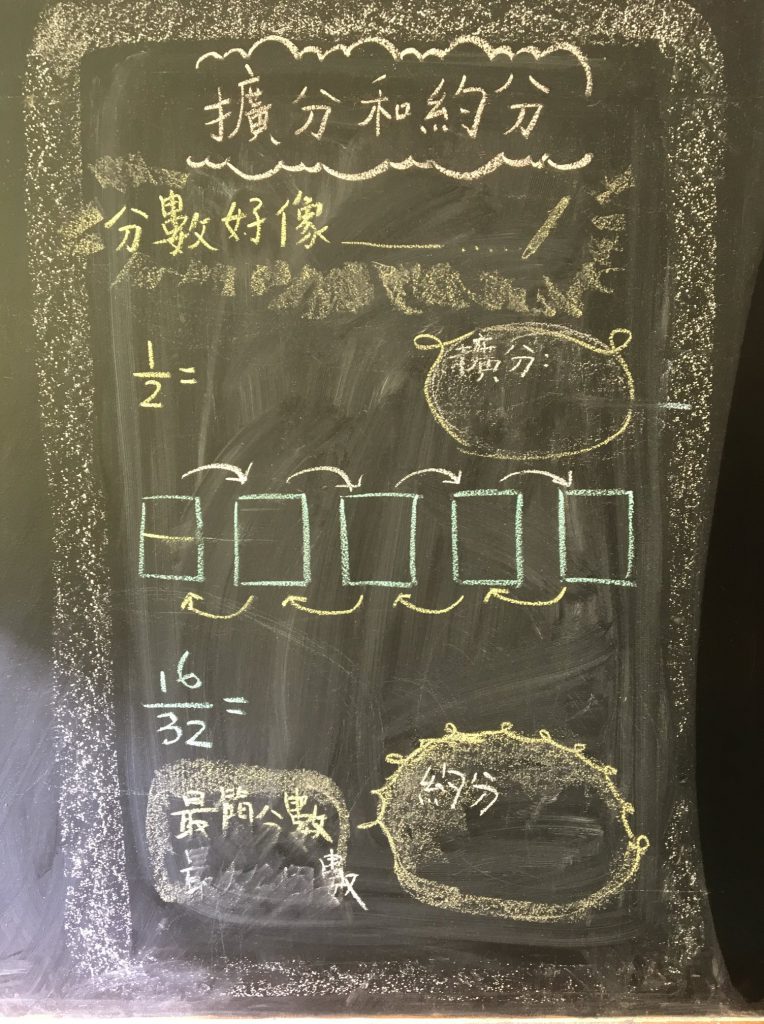 擴分和約分
分數好像＿＿＿.....
1/2=
擴分：
16/32=
最簡分數
約分